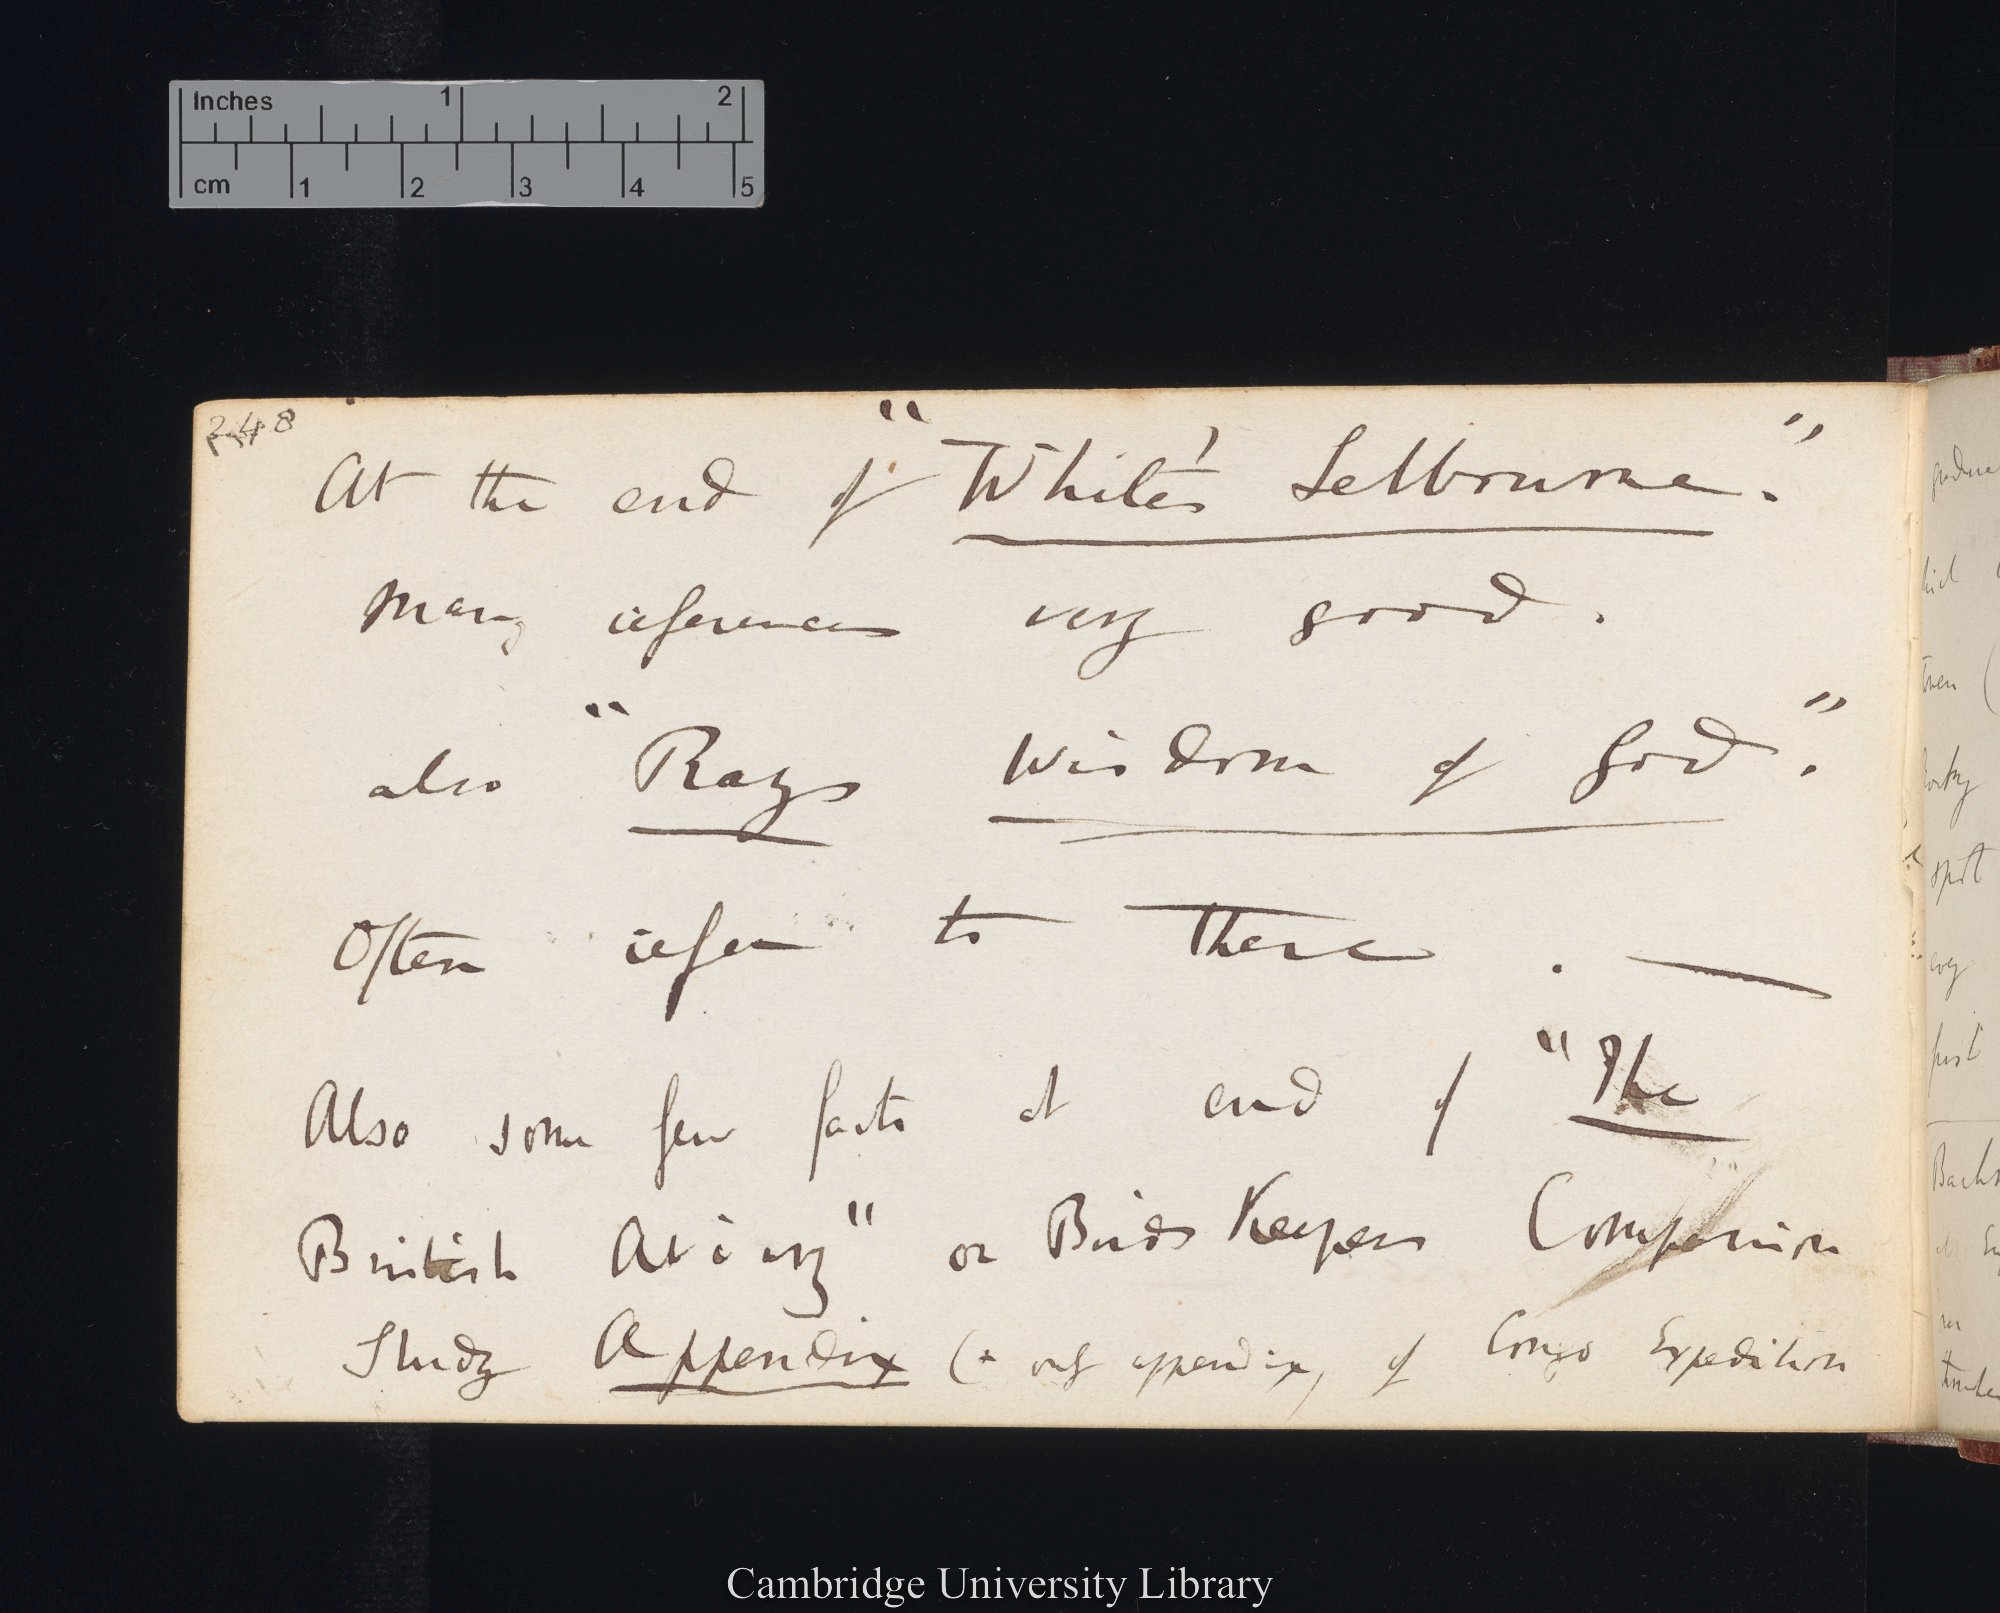 Inches 1 2
cm 1 2 3 4 5
248
At the end of "White's Selbourne."
many references very good.
also "Rays Wisdom of God".
Often refer to these. —
Also some few facts at end of "The
British Aviary" or Bird Keepers Companion
Study Appendix (& only appendix) of Congo Expedition
Cambridge University Library